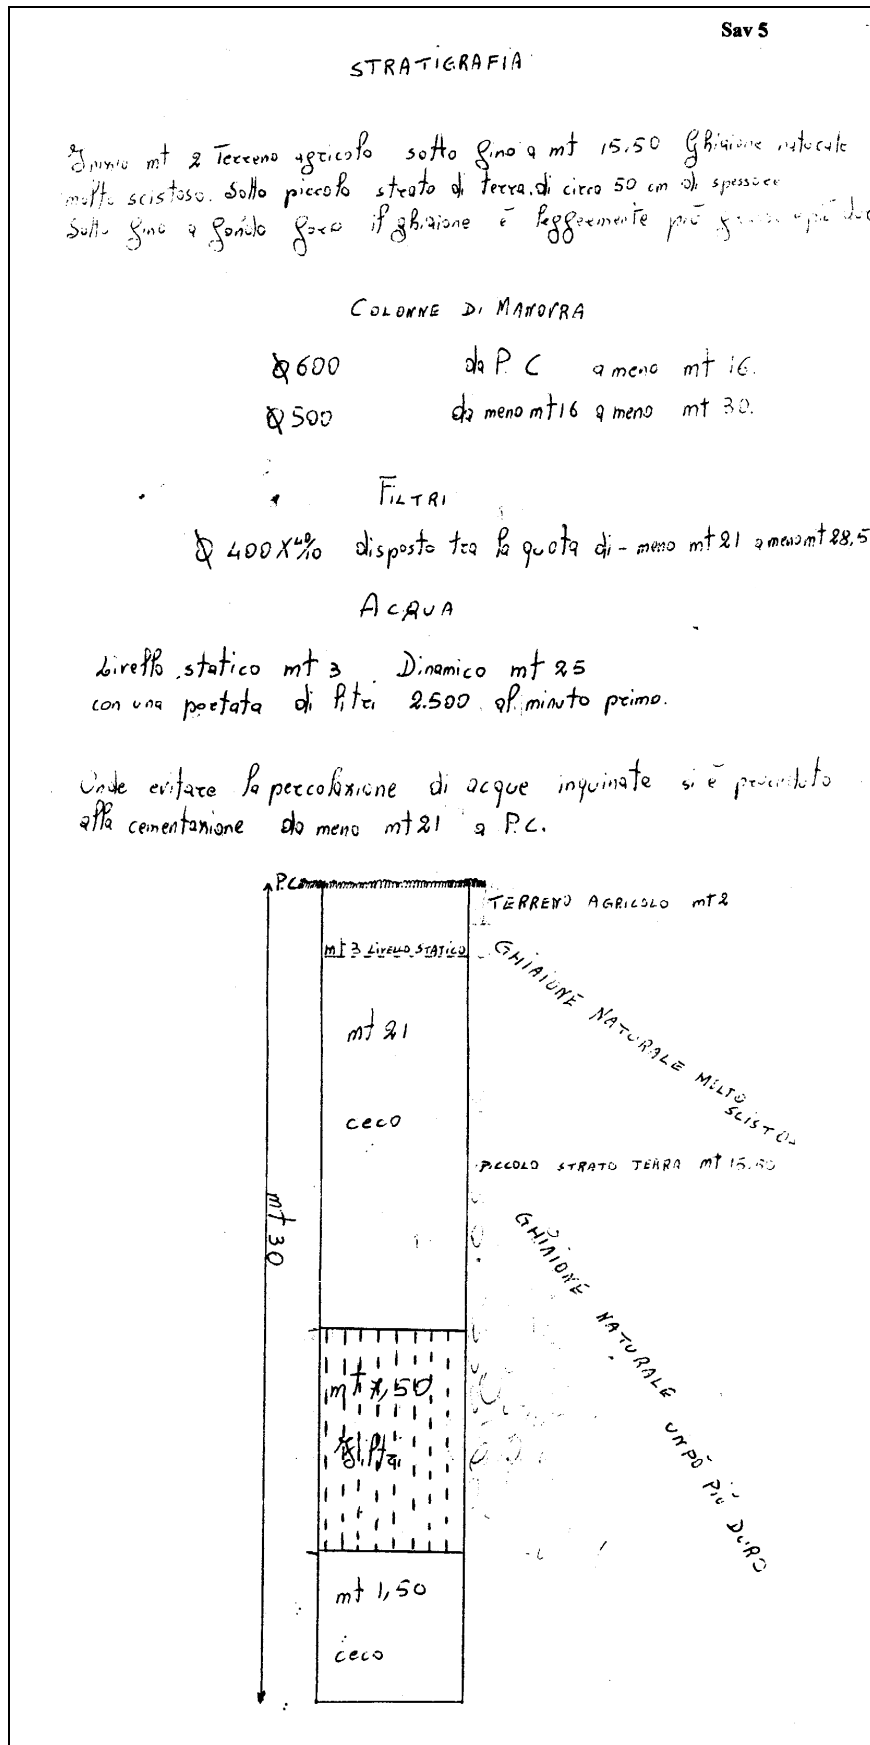 Sav 5
STRATIGRAFIA
mt 2 Terreno agricolo sotto fino a mt 15.50 Ghiaione naturale
molto scistoso. Sotto piccolo strato di terra di circa 50 cm di spessore
Sotto fino a fondo foro il ghiaione è leggermente più
COLONNE DI MANOVRA
Ø 600 da P.C a meno mt 16.
Ø 500 da meno mt 16 a meno mt 30.
FILTRI
Ø 400 X disposto tra la quota di - meno mt 21 a meno mt 28,5
ACQUA
Livello statico mt 3 Dinamico mt 25
con una portata di litri 2.500 al minuto primo.
Onde evitare la percolazione di acque inquinate si è proceduto
alla cementazione da meno mt 21 a P.C.
P.C.
TERRENO AGRICOLO mt 2
mt 3 LIVELLO STATICO
GHIAIONE NATURALE MOLTO
SCISTO
mt 21
ceco
PICCOLO STRATO TERRA mt 15.50
mt 30
GHIAIONE NATURALE UNPO PIU DURO
mt 7,50
filtri
mt 1,50
ceco